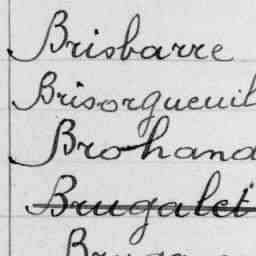 Brisbarre
Brisorgueuil
Brohand
Brugalet